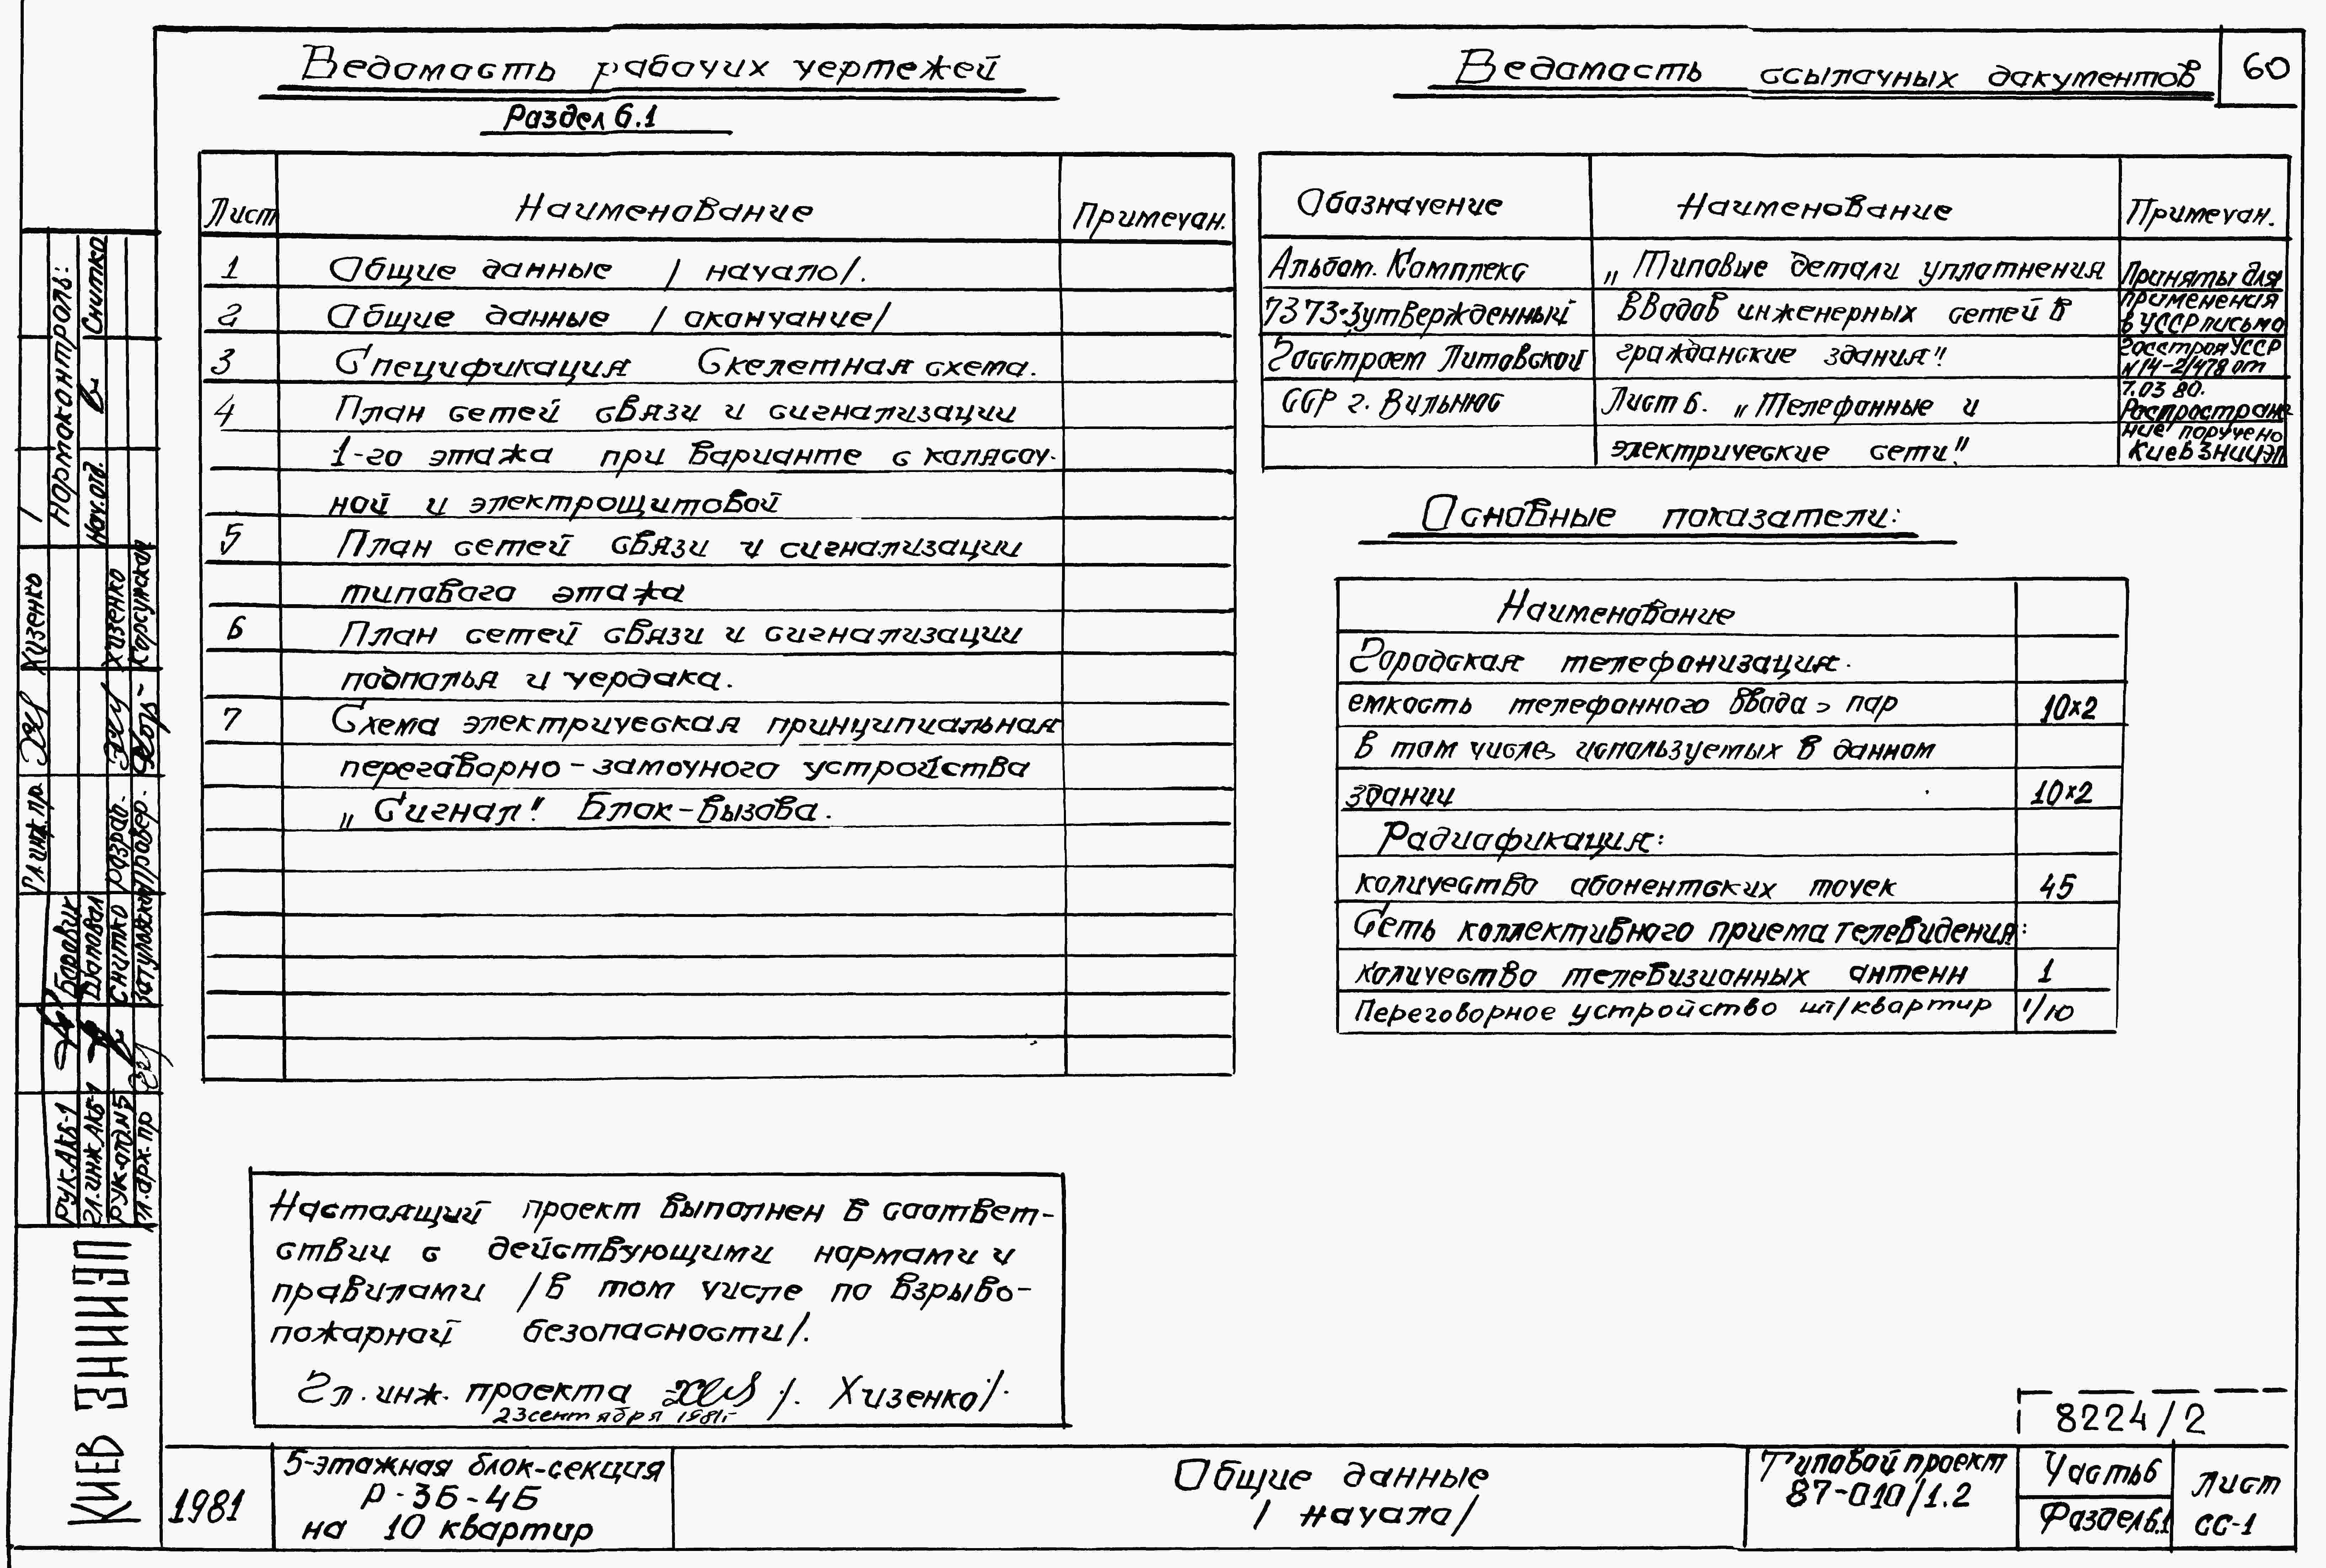 Ведомость рабочих чертежей
Раздел 6.1
Лист Наименование Примечан.
1 Общие данные /начало/.
2 Общие данные /окончание/
3 Спецификация Скелетная схема.
4 План сетей связи и сигнализации
1-го этажа при варианте с колясоч-
ной и электрощитовой
5 План сетей связи и сигнализации
типового этажа
6 План сетей связи и сигнализации
подполья и чердака.
7 Схема электрическая принципиальная
переговорно-замочного устройства
„Сигнал". Блок-вызова.
Ведомость ссылочных документов
60
Обозначение Наименование Примечан.
Альбом. Комплекс „Типовые детали уплотнения
7373-3 утвержденный вводов инженерных сетей в
Госстроем Литовской гражданские здания".
ССР г. Вильнюс Лист 6. „Телефонные и
электрические сети".
Приняты для
применения
в УССР письмо
Госстроя УССР
N14-2/478 от
7.03 80.
Распростране
ние поручено
КиевЗНИИЭП
Основные показатели:
Наименование
Городская телефонизация.
емкость телефонного ввода, пар 10×2
в том числе, используемых в данном
здании 10×2
Радиофикация:
количество абонентских точек 45
Сеть коллективного приема телевидения:
количество телевизионных антенн 1
Переговорное устройство шт/квартир 1/10
Настоящий проект выполнен в соответ-
ствии с действующими нормами и
правилами /в том числе по взрыво-
пожарной безопасности/.
Гл. инж. проекта /. Хизенко/.
23 сентября 1981г
8224/2
1981
5-этажная блок-секция
Р-3Б-4Б
на 10 квартир
Общие данные
/начало/
Типовой проект
87-010/1.2
Часть 6
Раздел 6.1
Лист
СС-1
КИЕВ ЗНИИЭП
Рук.АКБ-1 Боровик
Гл.инж.АКБ-1 Шаповал
Рук.отд.N5 Снитко
Гл.арх.пр
Гл.инж.пр. Хизенко
Разраб. Хизенко
Провер. Корсунская
Нормоконтроль:
Нач.отд. Снитко